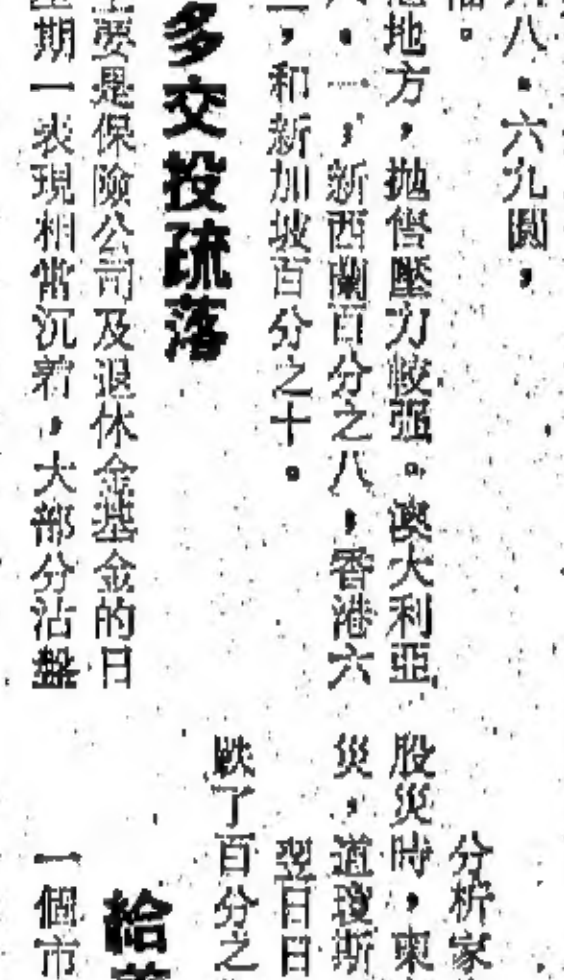 八．六九圓，
幅。
地方，拋售壓力較强。澳大利亞
．一，新西蘭百分之八，香港六
，和新加坡百分之十。
多交投疏落
要是保險公司及退休金基金的日
期一表現相當沉着，大部分沽盤
分析家
股災時，東
災，道瓊斯
翌日日
跌了百分之
給
一個市